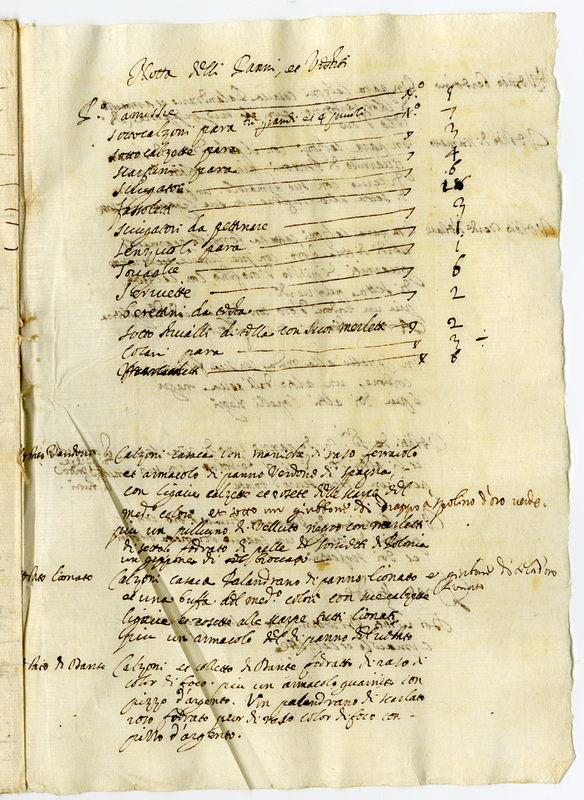 Notta delli Panni, et Vestiti
P.º Camiscie N.º 5
Sottocalzoni para tre grandi et 4 picioli N.º 7
Sottocalzette para 3
Scarpini para 4
Sciugatori 6
Fassoletti
Sciugatori da pettinare 3
Lenzuoli para 1
Tovaglie 1
Serviette 6
Berettini da 2
Sotto stivalli di tella con suoi merletti 2
Colari para 3
6
Calzoni casaca con maniche di raso ferraiolo
et armacolo di panno Verdone di Spagna
con ligacie calzette et rosete delle scarpe del
med.º colore et sotto un giubbone di drappo à spolino d'oro verde.
più un pelliccino di Velluto negro con merletti
di fodrato di pelle de di Polonia
un gippone di
lionato Calzoni casaca Palandrano di panno lionato e giubone di
et una buffa del med.º colore con sue calzette
ligacie et rosette alle scarpe tutti lionati
più un armacolo del di panno
di Dante Calzoni et coletto di Dante fodratti di raso di
color di foco più un armacolo guarnito con
pizzo d'argento. Un palandrano di scarlato
roso fodrato pur di raso color di foco con
pizzo d'argento.